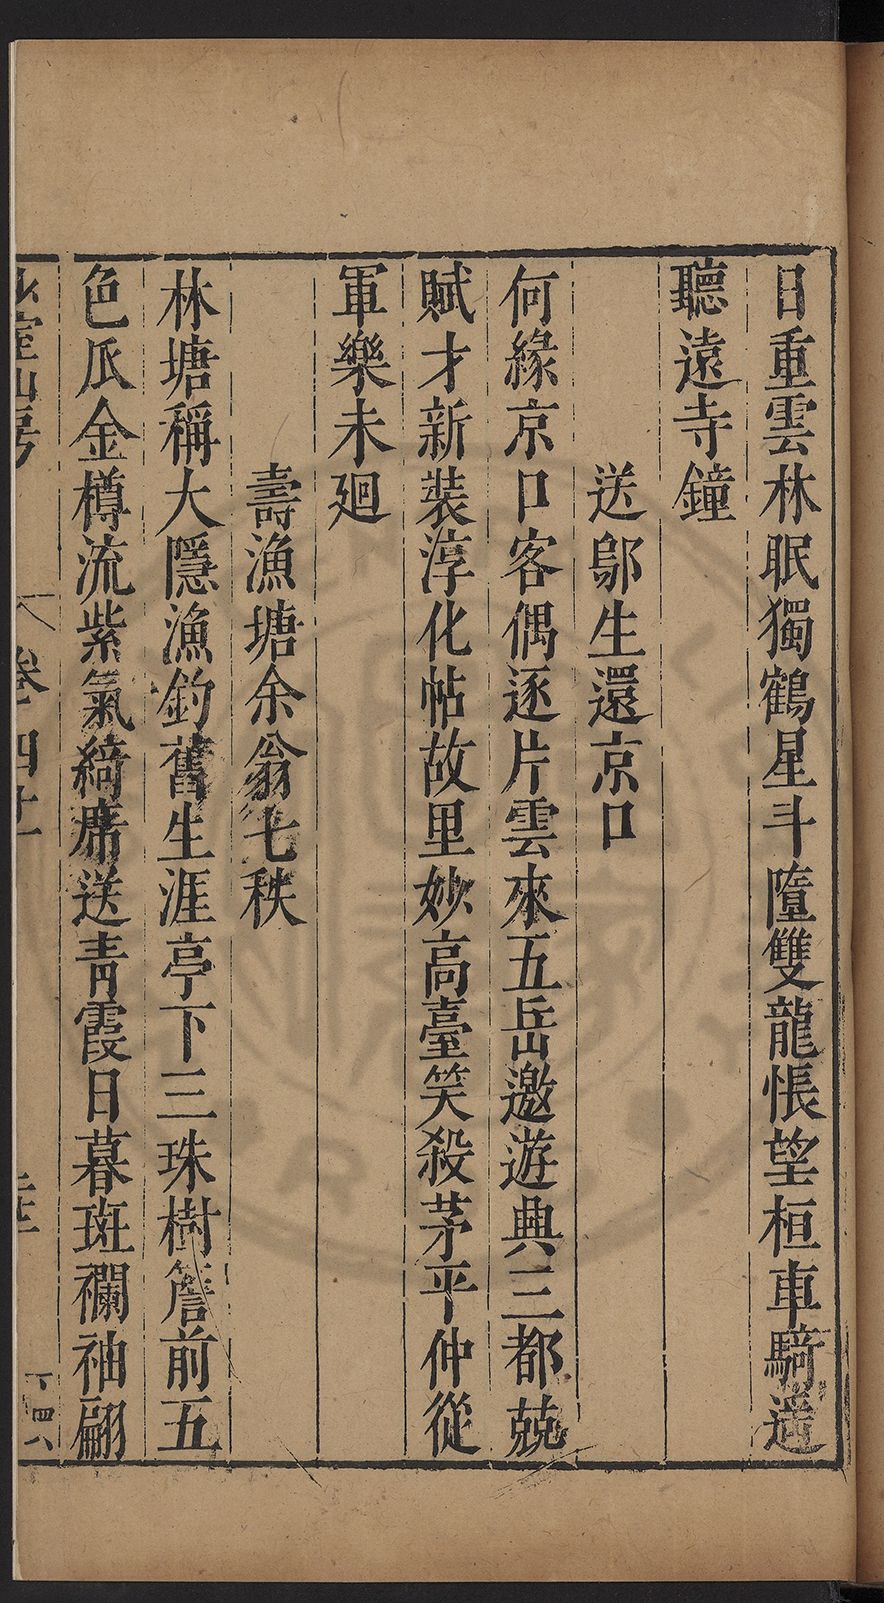 日重雲林眠獨鶴星斗墮雙龍悵望桓車騎遥
聽遠寺鐘
送鄔生還京口
何緣京口客偶逐片雲來五岳邀遊典三都兢
賦才新裝淳化帖故里妙高臺笑殺茅平仲從
軍樂未廻
壽漁塘余翁七秩
林塘稱大隱漁釣舊生涯亭下三珠樹簷前五
色瓜金樽流紫氣綺席送青霞日暮斑襴袖翩
少室山房 卷四十